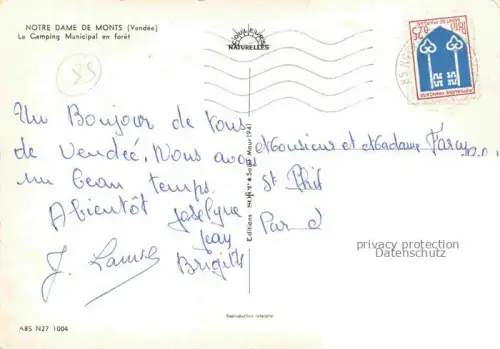 NOTRE DAME DE MONTS (Vendée)
Le Camping Municipal en forêt
COULEURS
NATURELLES
85
0,25
REPUBLIQUE FRANÇAISE
MONT DE MARSAN
Un Bonjour de tous
de Vendée. Nous avons
un beau temps.
A bientôt Joselyne
Jean
Brigitte
Monsieur et Madame
St
Par
Editions
Saint Maur (94)
privacy protection
Datenschutz
Reproduction interdite
ABS N27 1004